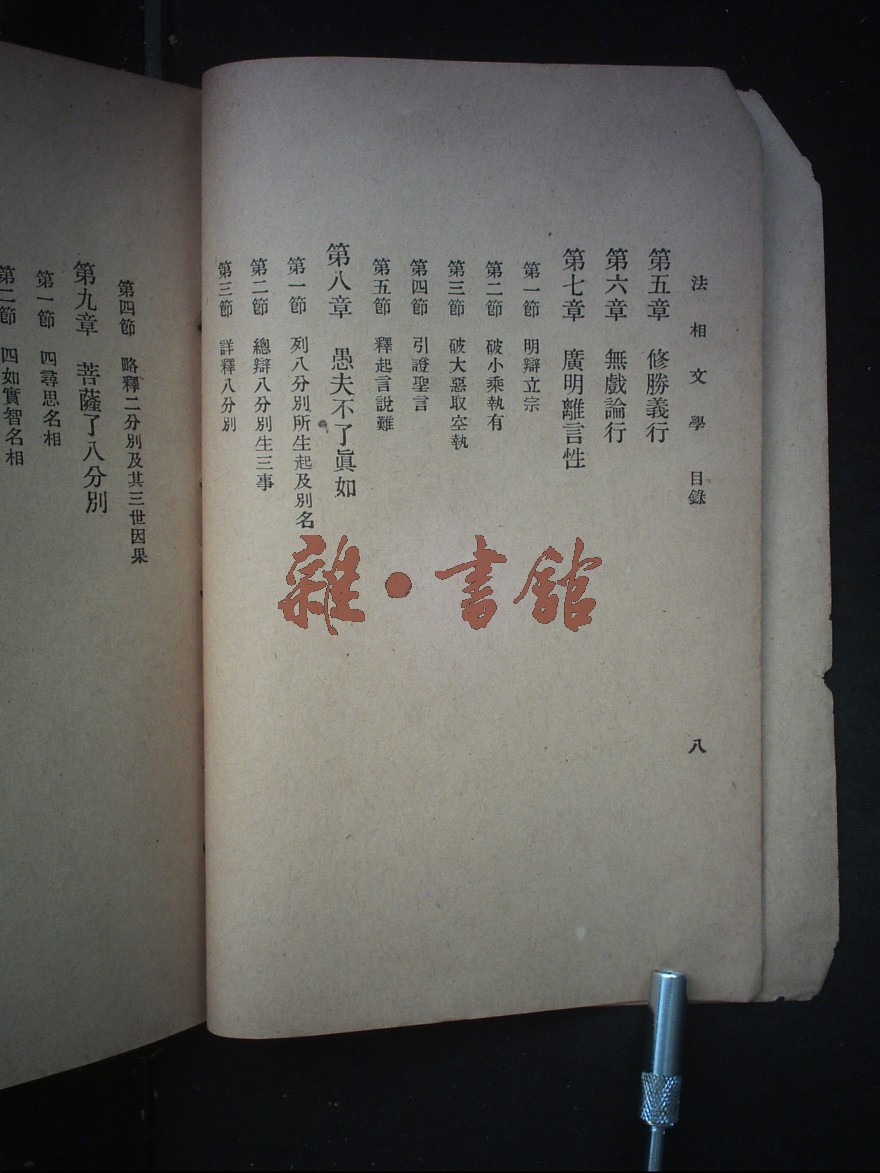 法相文學 目錄 八
第五章 修勝義行
第六章 無戲論行
第七章 廣明離言性
第一節 明辯立宗
第二節 破小乘執有
第三節 破大惡取空執
第四節 引證聖言
第五節 釋起言說難
第八章 愚夫不了眞如
第一節 列八分別所生起及別名
第二節 總辯八分別生三事
第三節 詳釋八分別
第四節 略釋二分別及其三世因果
第九章 菩薩了八分別
第一節 四尋思名相
第二節 四如實智名相
雜·書館